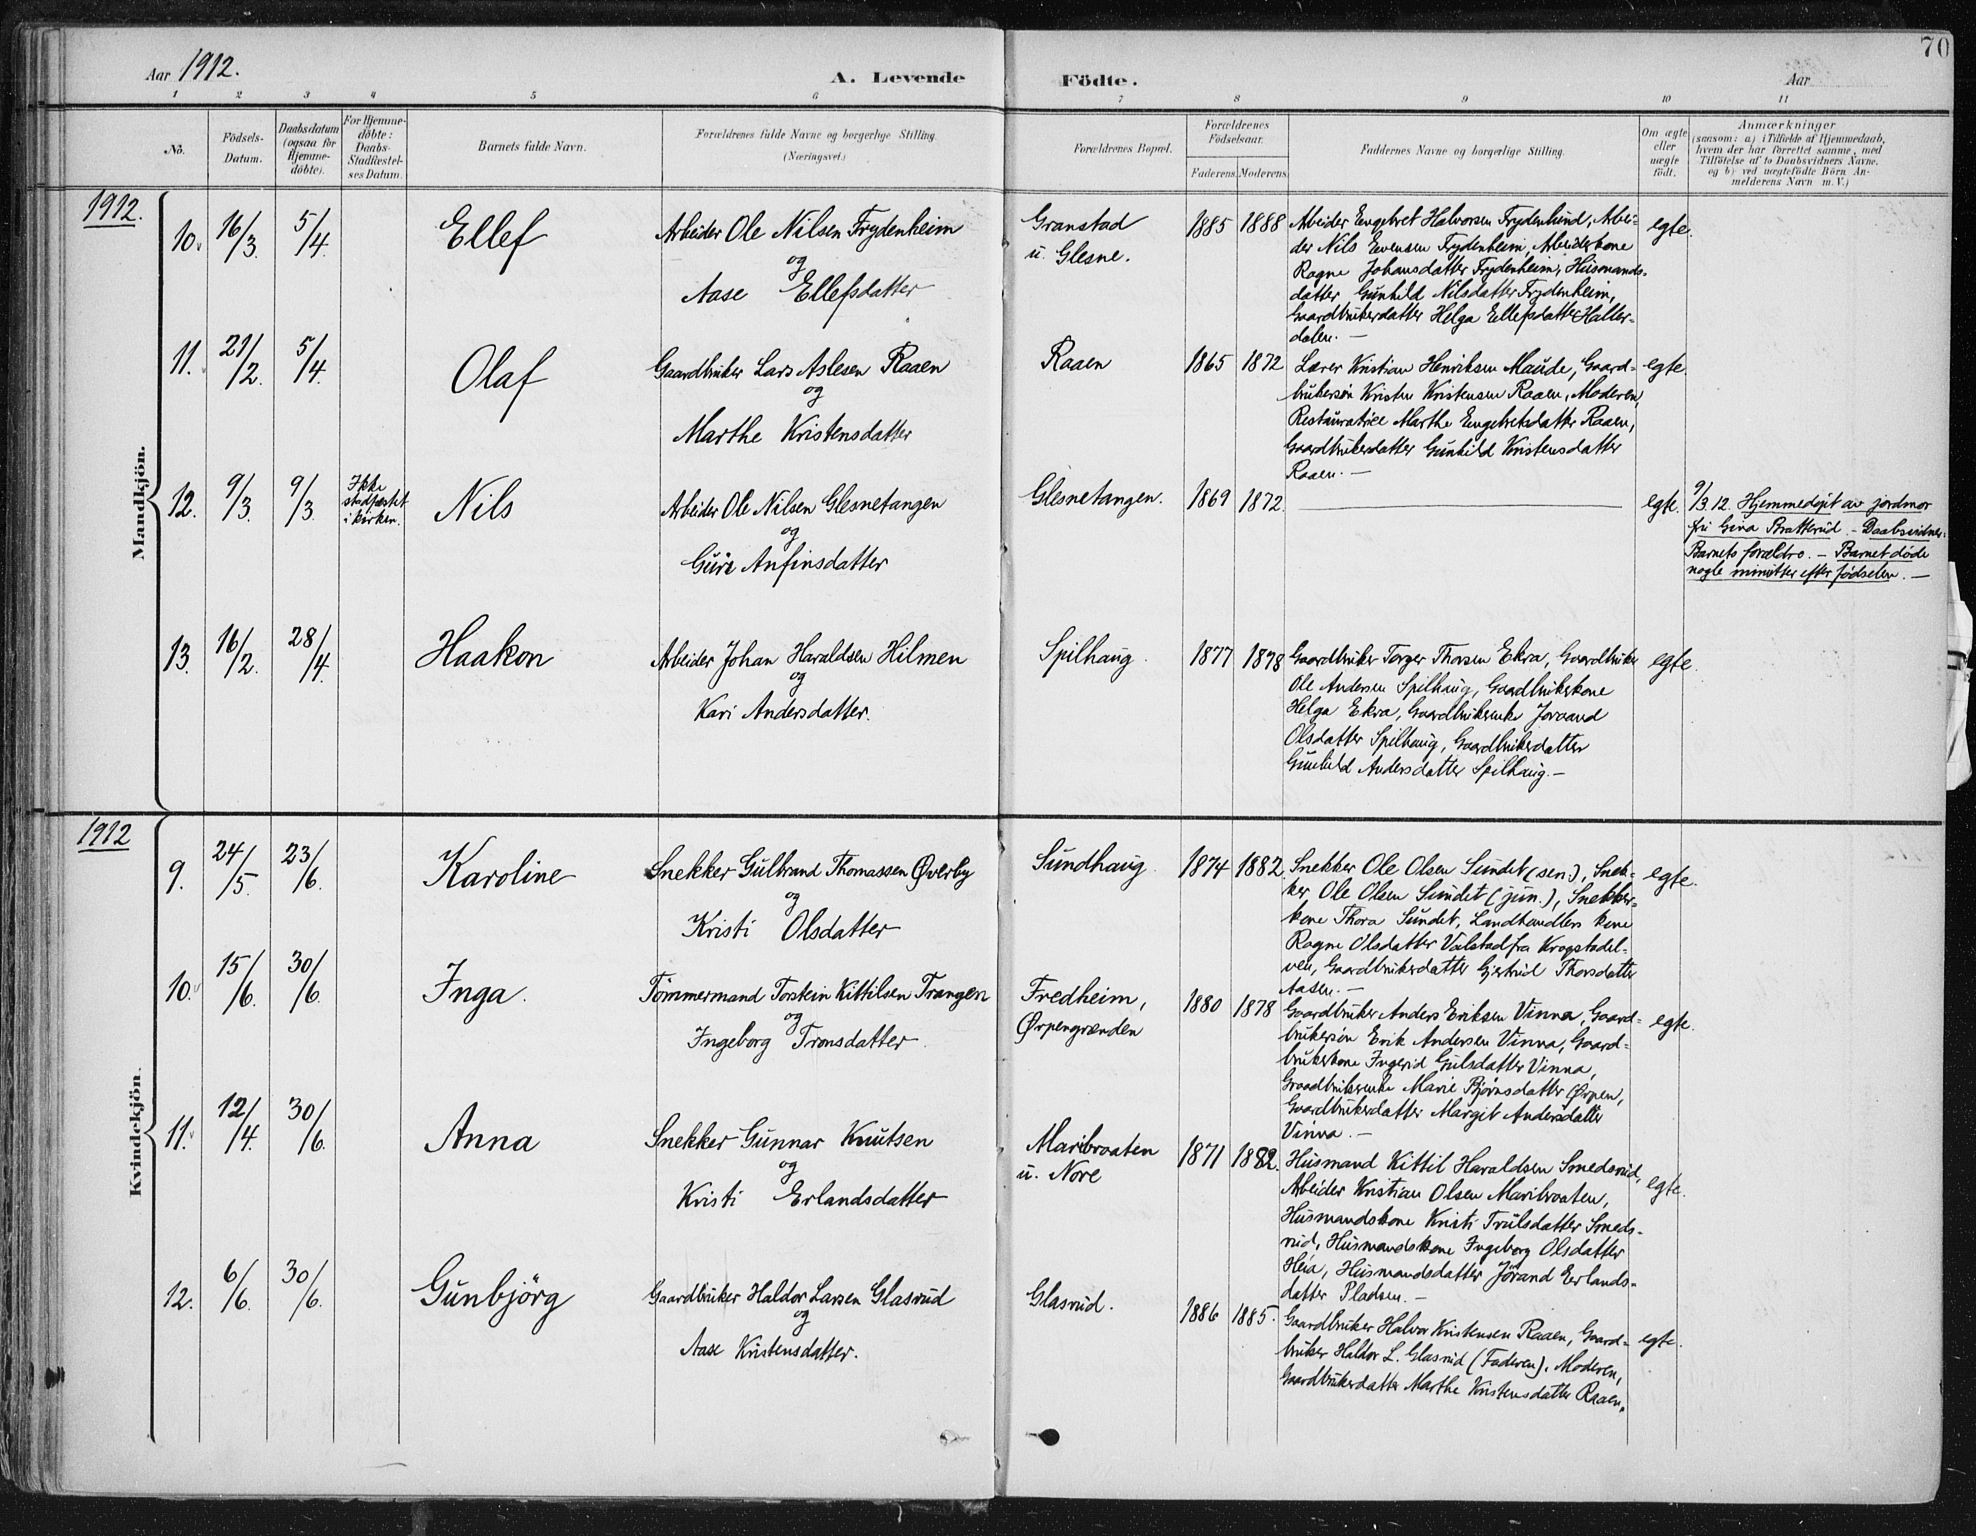 70
Aar 1912.
A. Levende Födte.
Aar
1 2 3 4 5 6 7 8 9 10 11
No.
Födsels-
Datum.
Daabsdatum
(ogsaa for
Hjemme-
döbte).
For Hjemme-
döbte:
Daabs-
Stadfæstel-
ses Datum.
Barnets fulde Navn.
Forældrenes fulde Navne og borgerlige Stilling.
(Næringsvei.)
Forældrenes Bopæl.
Forældrenes
Födselsaar.
Faderens. Moderens.
Faddernes Navne og borgerlige Stilling.
Om ægte
eller
uægte
födt.
Anmærkninger
(saasom: a) i Tilfælde af Hjemmedaab,
hvem der har forrettet samme, med
Tilföielse af to Daabsvidners Navne,
og b) ved uægtefödte Börn An-
melderens Navn m. V.)
1912.
Mandkjön.
10. 16/3. 5/4.
Ellef
Arbeider Ole Nilsen Frydenheim
og
Aase Ellefsdatter
Granstad
u. Glesne.
1885 1888
Arbeider Engebret Halvorsen Frydenlund, Arbei-
der Nils Evensen Frydenheim, Arbeiderkone
Ragne Johansdatter Frydenheim, Husmands-
datter Gunhild Nilsdatter Frydenheim,
Gaardbrukerdatter Helga Ellefsdatter Haller-
dalen. —
egte.
11. 21/2. 5/4.
Olaf
Gaardbruker Lars Aslesen Raaen
og
Marthe Kristensdatter
Raaen
1865 1872
Lærer Kristian Henriksen Maude, Gaard-
brukersøn Kristen Kristensen Raaen, Moderen,
Restauratrice Marthe Engebretsdatter Raaen,
Gaardbrukerdatter Gunhild Kristensdatter
Raaen. —
egte.
12. 9/3. 9/3.
Ikke
stadfæstet
i kirken.
Nils
Arbeider Ole Nilsen Glesnetangen
og
Guri Anfinsdatter
Glesnetangen.
1869 1872.
egte.
9/3.12. Hjemmedøpt av jordmor
fru Gina Bratterud – Daabsvidner:
Barnets forældre. – Barnet døde
nogle minutter efter fødselen. —
13. 16/2. 28/4.
Haakon
Arbeider Johan Haraldsen Hilmen
og
Kari Andersdatter.
Spilhaug.
1877 1878
Gaardbruker Torger Thorsen Ekra, Gaardbruker
Ole Andersen Spilhaug, Gaardbrukerkone
Helga Ekra, Gaardbrukerenke Joraand
Olsdatter Spilhaug, Gaardbrukerdatter
Gunhild Andersdatter Spilhaug. —
egte.
1912
Kvindekjön.
9. 24/5. 23/6.
Karoline
Snekker Gulbrand Thomassen Øverby
og
Kristi Olsdatter
Sundhaug
1874 1882.
Snekker Ole Olsen Sundet (sen.), Snek-
ker Ole Olsen Sundet (jun.), Snekker-
kone Thora Sundet, Landhandlers kone
Ragne Olsdatter Valstad fra Krogstadel-
ven, Gaardbrukerdatter Gjertrud Thorsdatter
Aasen. —
egte.
10. 15/6. 30/6.
Inga.
Tömmermand Torstein Kittilsen Trangen
og
Ingeborg Tronsdatter.
Fredheim,
Ørpengrænden
1880 1878
Gaardbruker Anders Eriksen Vinna, Gaard-
brukersøn Erik Andersen Vinna, Gaard-
brukerkone Ingerid Gulsdatter Vinna,
Graadbrukerenke Marie Bjørnsdatter Ørpen,
Gaardbrukerdatter Margit Andersdatter
Vinna. —
egte.
11. 12/4. 30/6.
Anna
Snekker Gunnar Knutsen
og
Kristi Erlandsdatter
Maribraaten
u. Nore
1871 1882.
Husmand Kittil Haraldsen Smedsrud,
Arbeider Kristian Olsen Maribraaten,
Husmandskone Kristi Trulsdatter Smeds-
rud, Husmandskone Ingeborg Olsdatter
Heia, Husmandsdatter Jørand Erlands-
datter Pladsen. —
egte.
12. 6/6. 30/6.
Gunbjörg
Gaardbruker Haldor Larsen Glasrud
og
Aase Kristensdatter.
Glasrud.
1886 1885.
Gaardbruker Halvor Kristensen Raaen, Gaard-
bruker Haldor L. Glasrud (Faderen), Moderen,
Gaardbrukerdatter Marthe Kristensdatter Raaen.
egte.